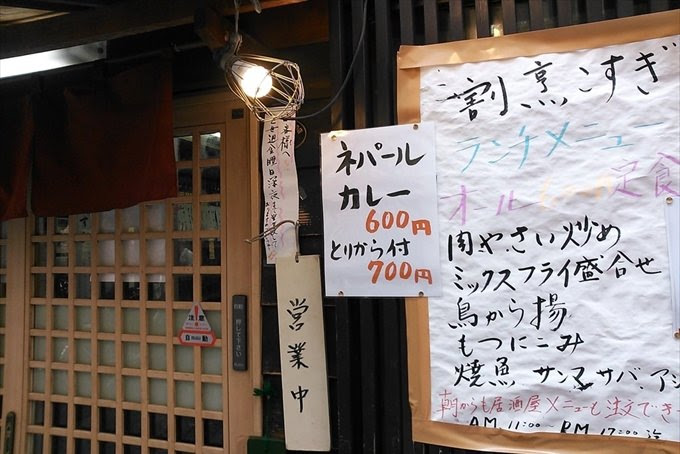 ネパール
カレー
600円
とりから付
700円
営業中
注意
自動
割烹 こすぎ
ランチメニュー
オール
定食
肉やさい炒め
ミックスフライ盛合せ
鳥から揚
もつにこみ
焼魚 サンマ、サバ、アジ
朝からも居酒屋メニューも注文でき
AM 11:00~PM 17:00迄